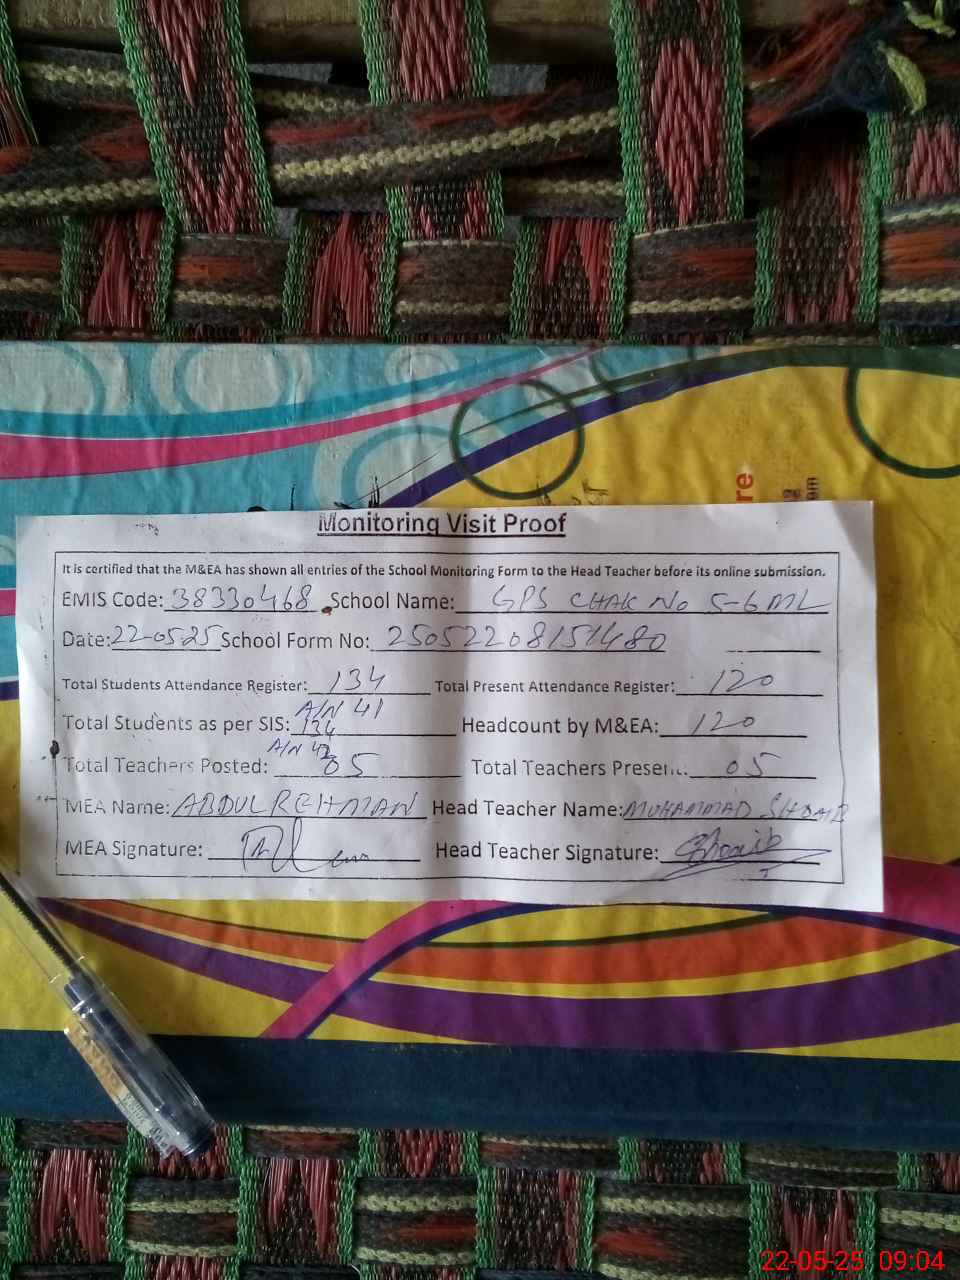 re
Monitoring Visit Proof
It is certified that the M&EA has shown all entries of the School Monitoring Form to the Head Teacher before its online submission.
EMIS Code: 38330468 School Name: GPS CHAK No 5-6 ML
Date: 22-05-25 School Form No: 25052208151480
Total Students Attendance Register: 134 Total Present Attendance Register: 120
A/N 41
Total Students as per SIS: 134 Headcount by M&EA: 120
A/N 42
Total Teachers Posted: 05 Total Teachers Present: 05
MEA Name: ABDUL REHMAN Head Teacher Name: MUHAMMAD SHOAIB
MEA Signature: Head Teacher Signature: Shoaib
22-05-25 09:04